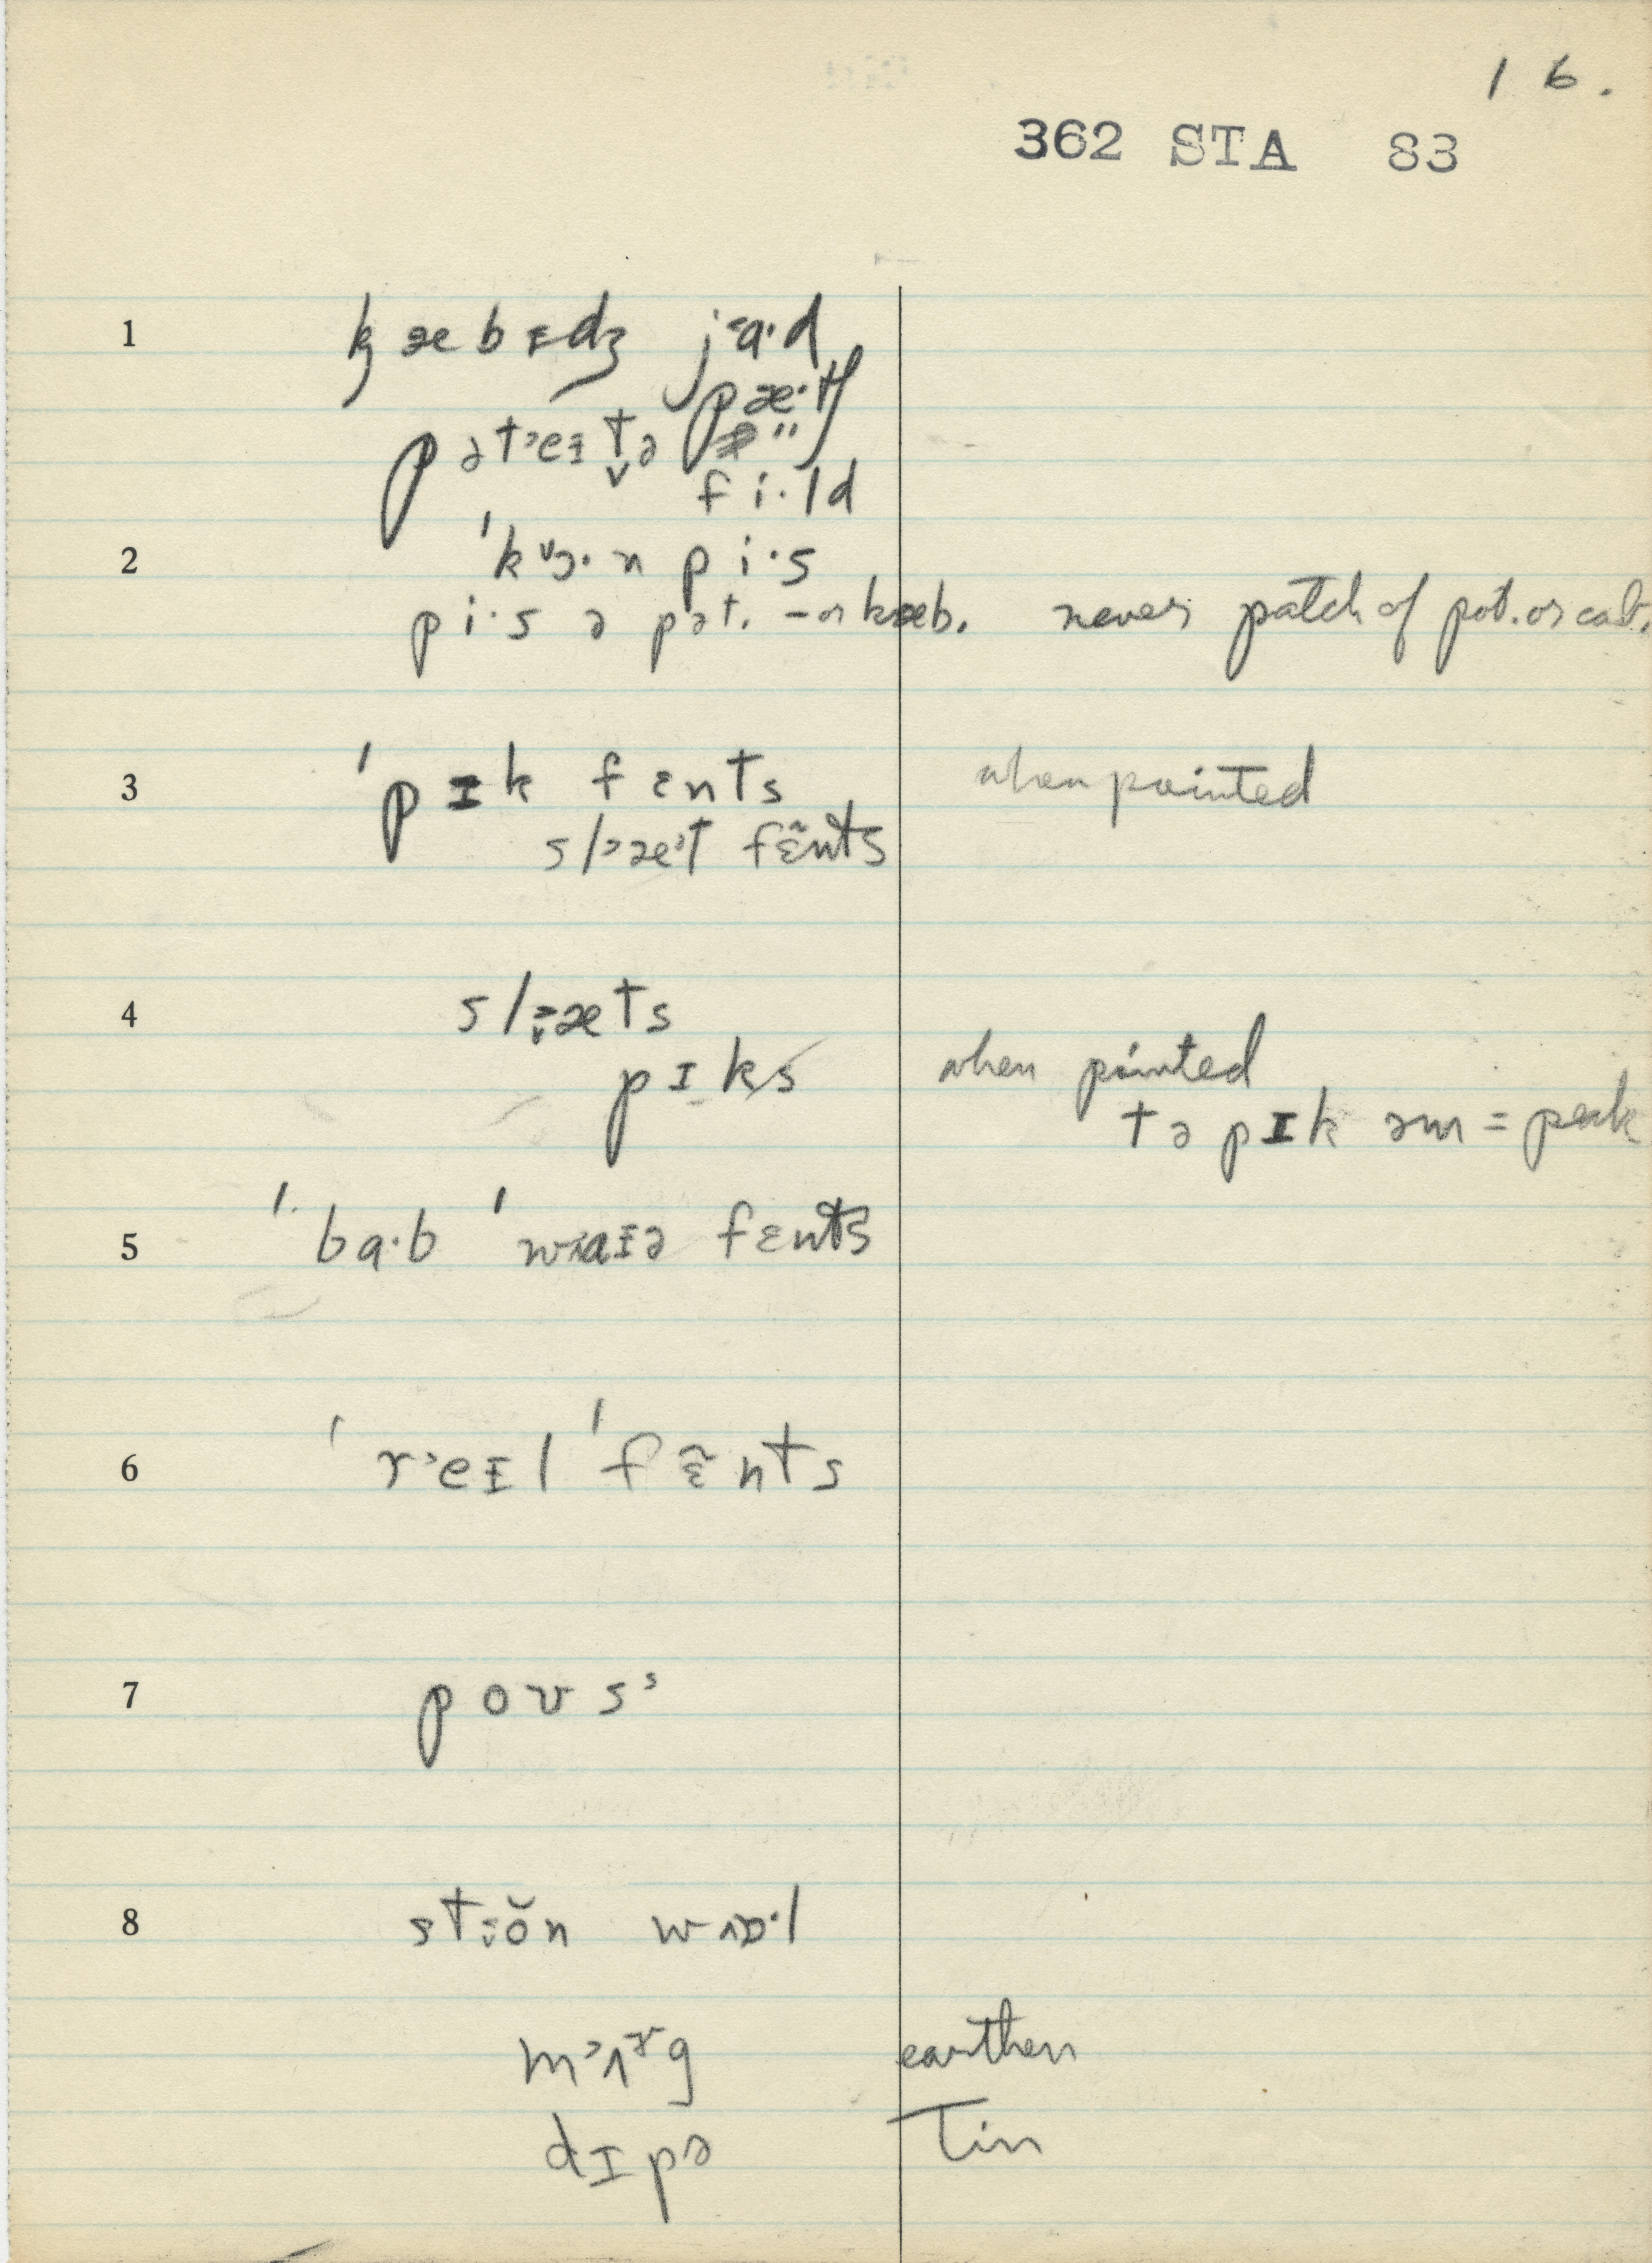 16.
362 STA 83
1 kæbɪdʒ jɑ·d
pæ·tʃ
pət˃eɪt̬ə "
fi·ld
2 'kɔ·n pi·s
pi·s ə pət. – or kæb. never patch of pot. or cab.
3 'pɪk fɛnts when pointed
sl˃æ˃t fɛ̃nts
4 sl˃̬æts
pɪks when pointed
tə pɪk əm = peak
5 'bɑ·b 'wɑɪə fɛnts
6 'r˃eɪl 'fɛ̃nts
7 poʊsˢ
8 st˃̬ŏn wɒ·l
m˃ʌʳg earthen
dɪpə Tin